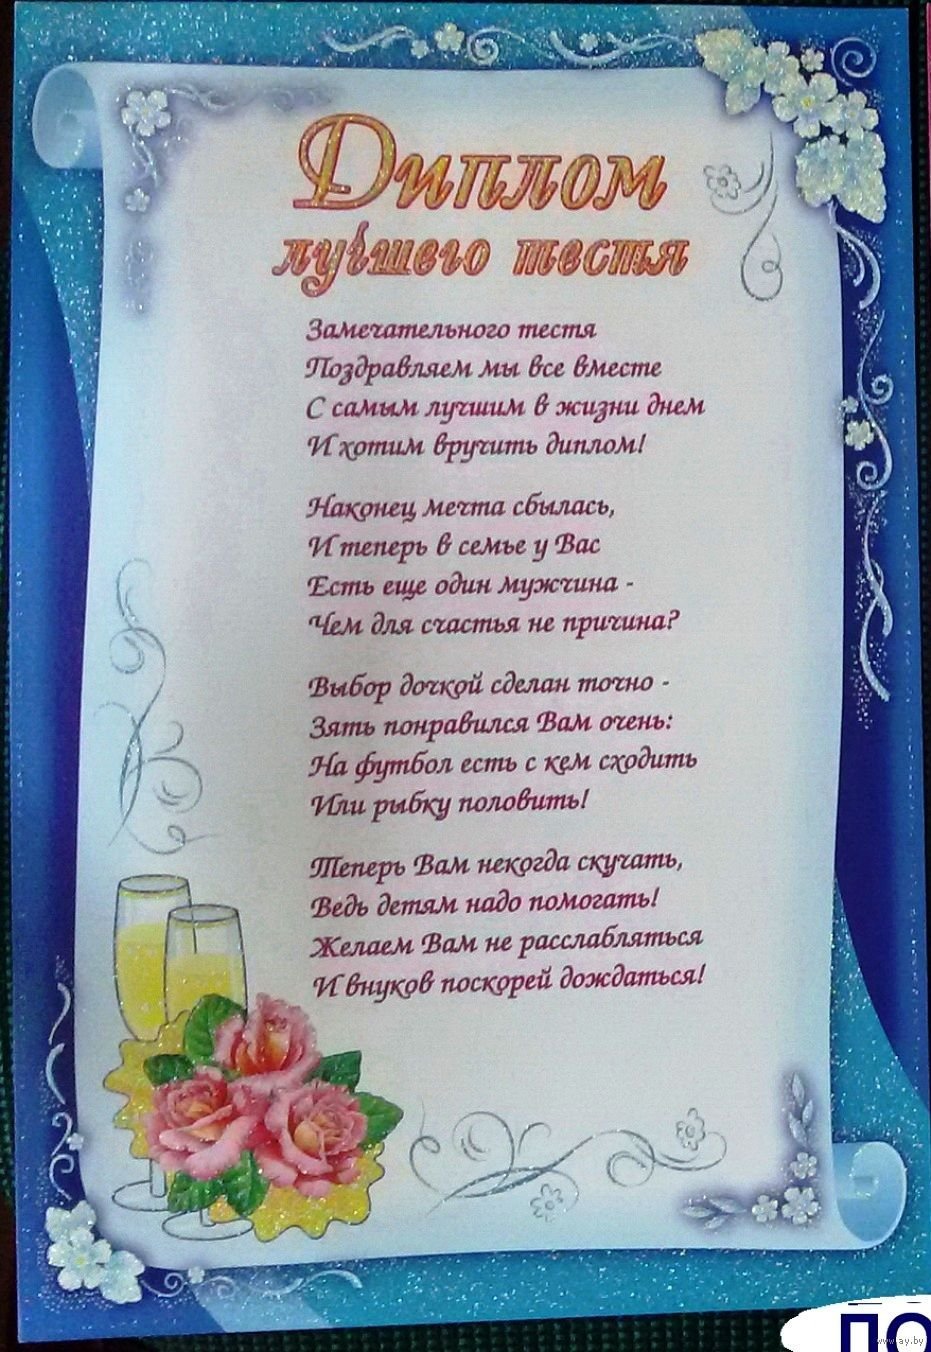 Диплом
лучшего тестя
Замечательного тестя
Поздравляем мы все вместе
С самым лучшим в жизни днем
И хотим вручить диплом!
Наконец мечта сбылась,
И теперь в семье у Вас
Есть еще один мужчина -
Чем для счастья не причина?
Выбор дочкой сделан точно -
Зять понравился Вам очень:
На футбол есть с кем сходить
Или рыбку половить!
Теперь Вам некогда скучать,
Ведь детям надо помогать!
Желаем Вам не расслабляться
И внуков поскорей дождаться!
ПО
www.ay.by